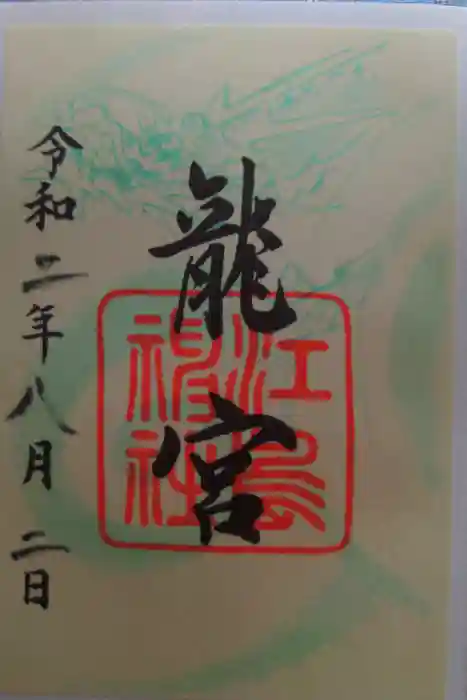 龍宮
江島
神社
令和二年八月二日